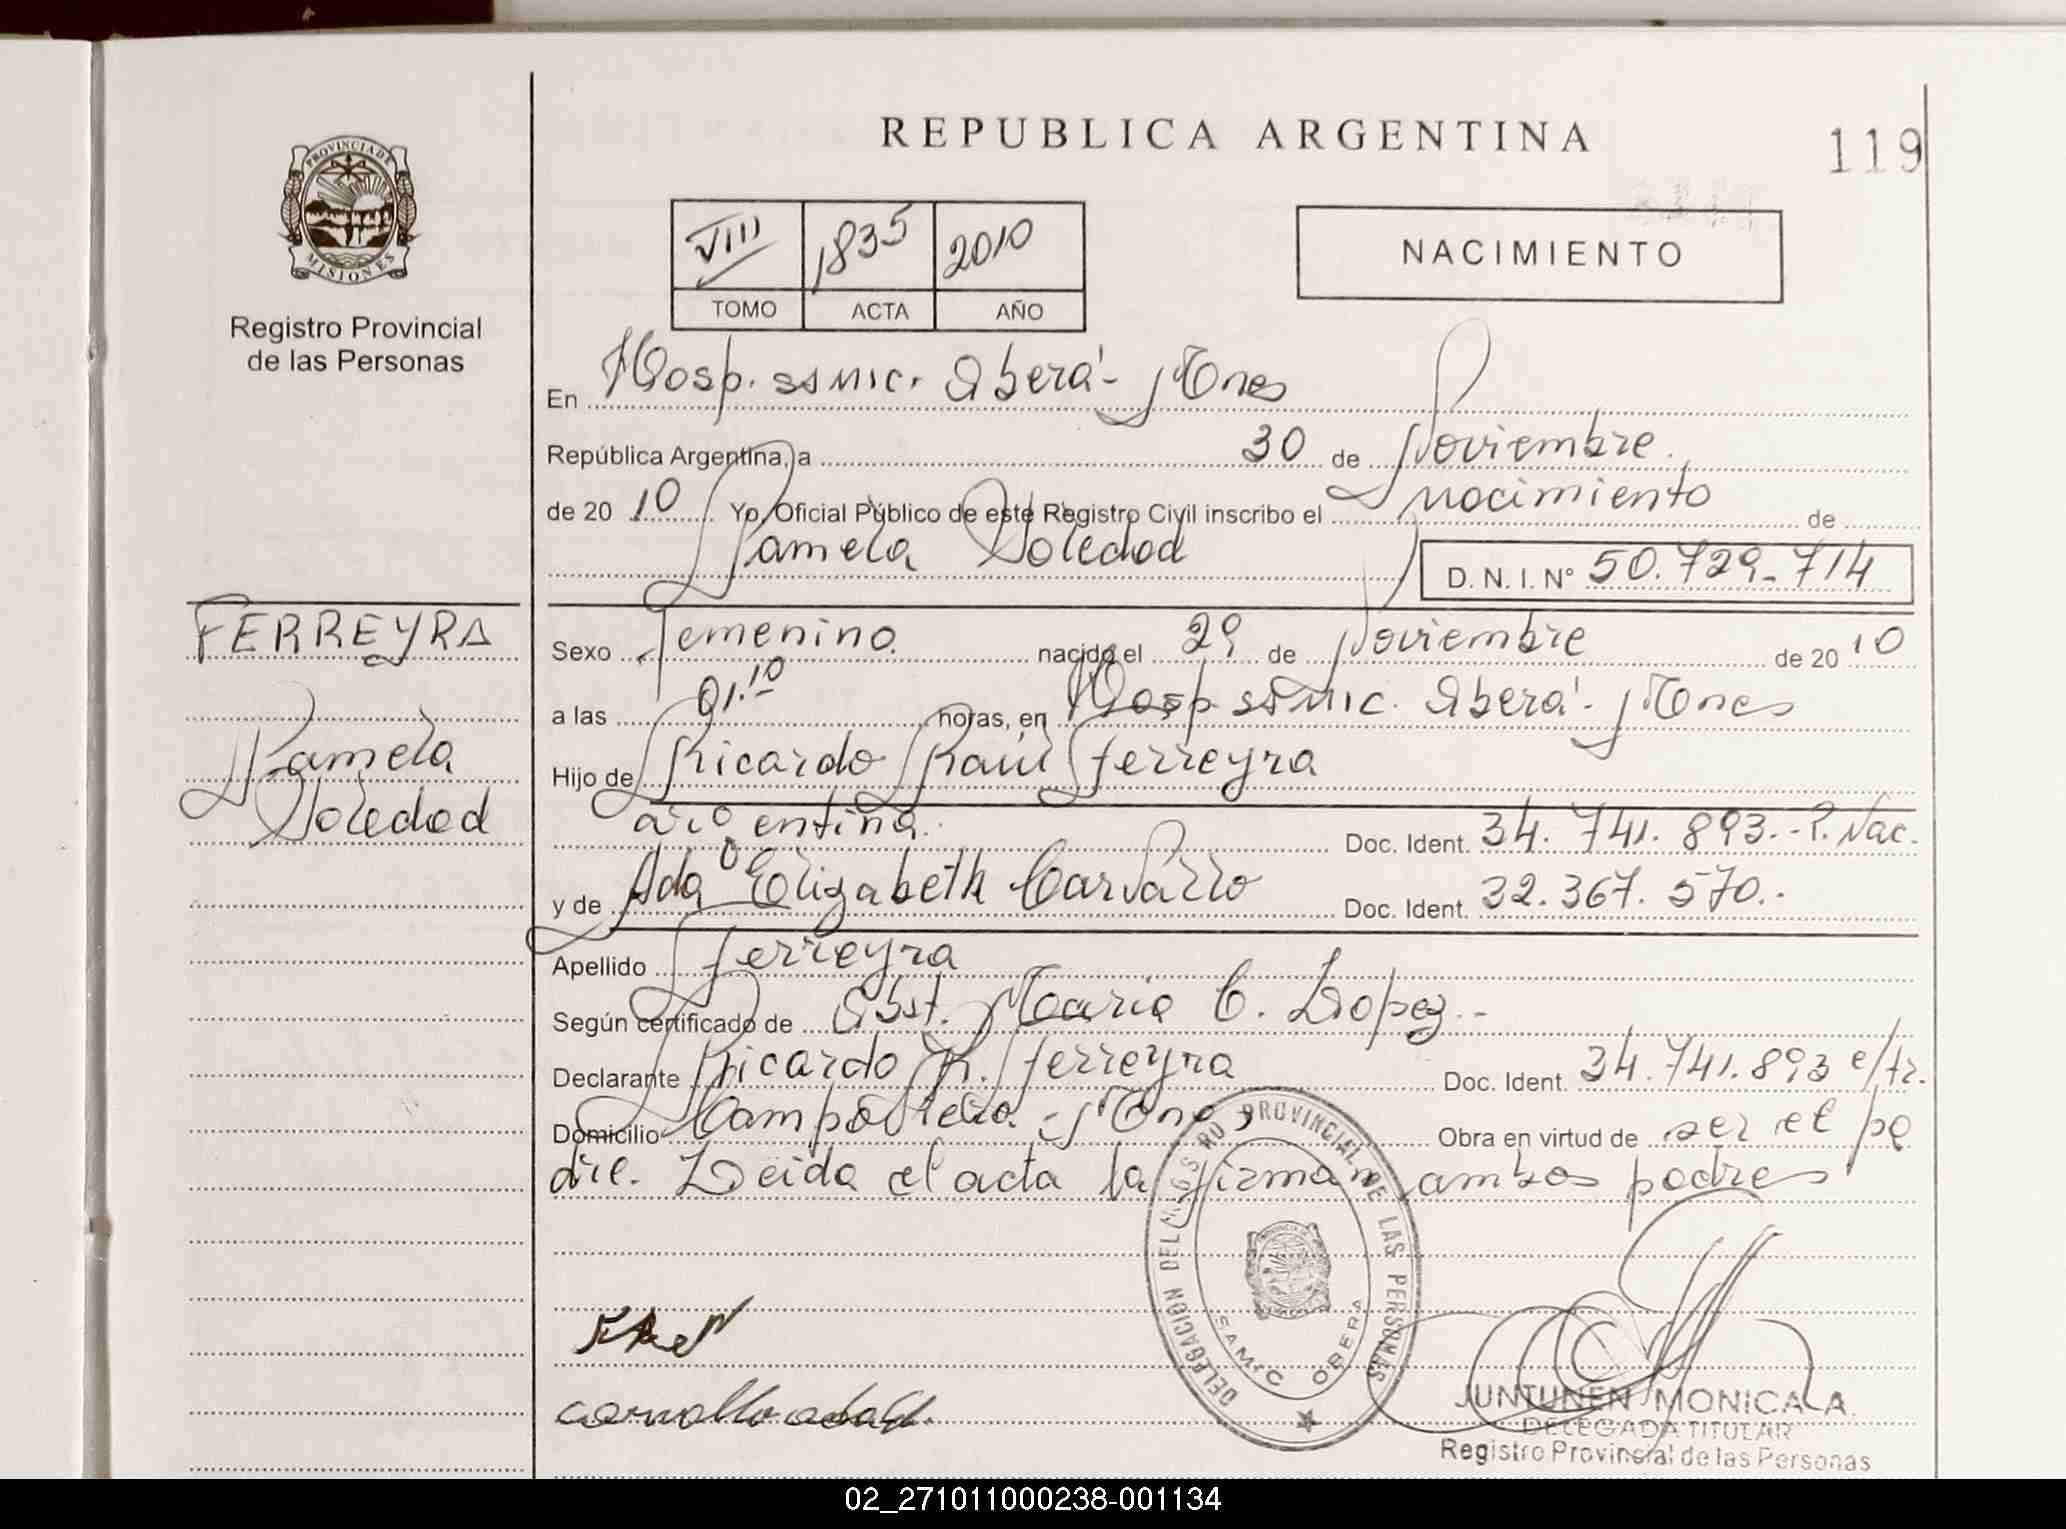 REPUBLICA ARGENTINA
119
PROVINCIA DE
MISIONES
Registro Provincial
de las Personas
VIII 1835 2010
TOMO ACTA AÑO
NACIMIENTO
En Hosp. ssmic. Oberá - Mnes
República Argentina, a 30 de Noviembre.
de 20 10 Yo, Oficial Público de este Registro Civil inscribo el nacimiento de
Pamela Soledad
D. N. I. Nº 50.729.714
FERREYRA
Pamela
Soledad
Sexo Femenino. nacido el 29 de Noviembre de 20 10
a las 01.10 horas, en Hosp ssmic. Oberá - Mnes
Hijo de Ricardo Raúl Ferreyra
argentina. Doc. Ident. 34.741.893.- P. Nac.
y de Ada Elizabeth Carvallo Doc. Ident. 32.367.570.-
Apellido Ferreyra
Según certificado de Obst. Maria C. Lopez.-
Declarante Ricardo R. Ferreyra Doc. Ident. 34.741.893 e/tr.
Domicilio Campo Viera - Mnes Obra en virtud de ser el pa
dre. Leida el acta la firman ambos padres
DELEGACION DEL REGISTRO PROVINCIAL DE LAS PERSONAS
SAMIC OBERA
carvallo ada
JUNTUNEN MONICA A.
DELEGADA TITULAR
Registro Provincial de las Personas
02_271011000238-001134